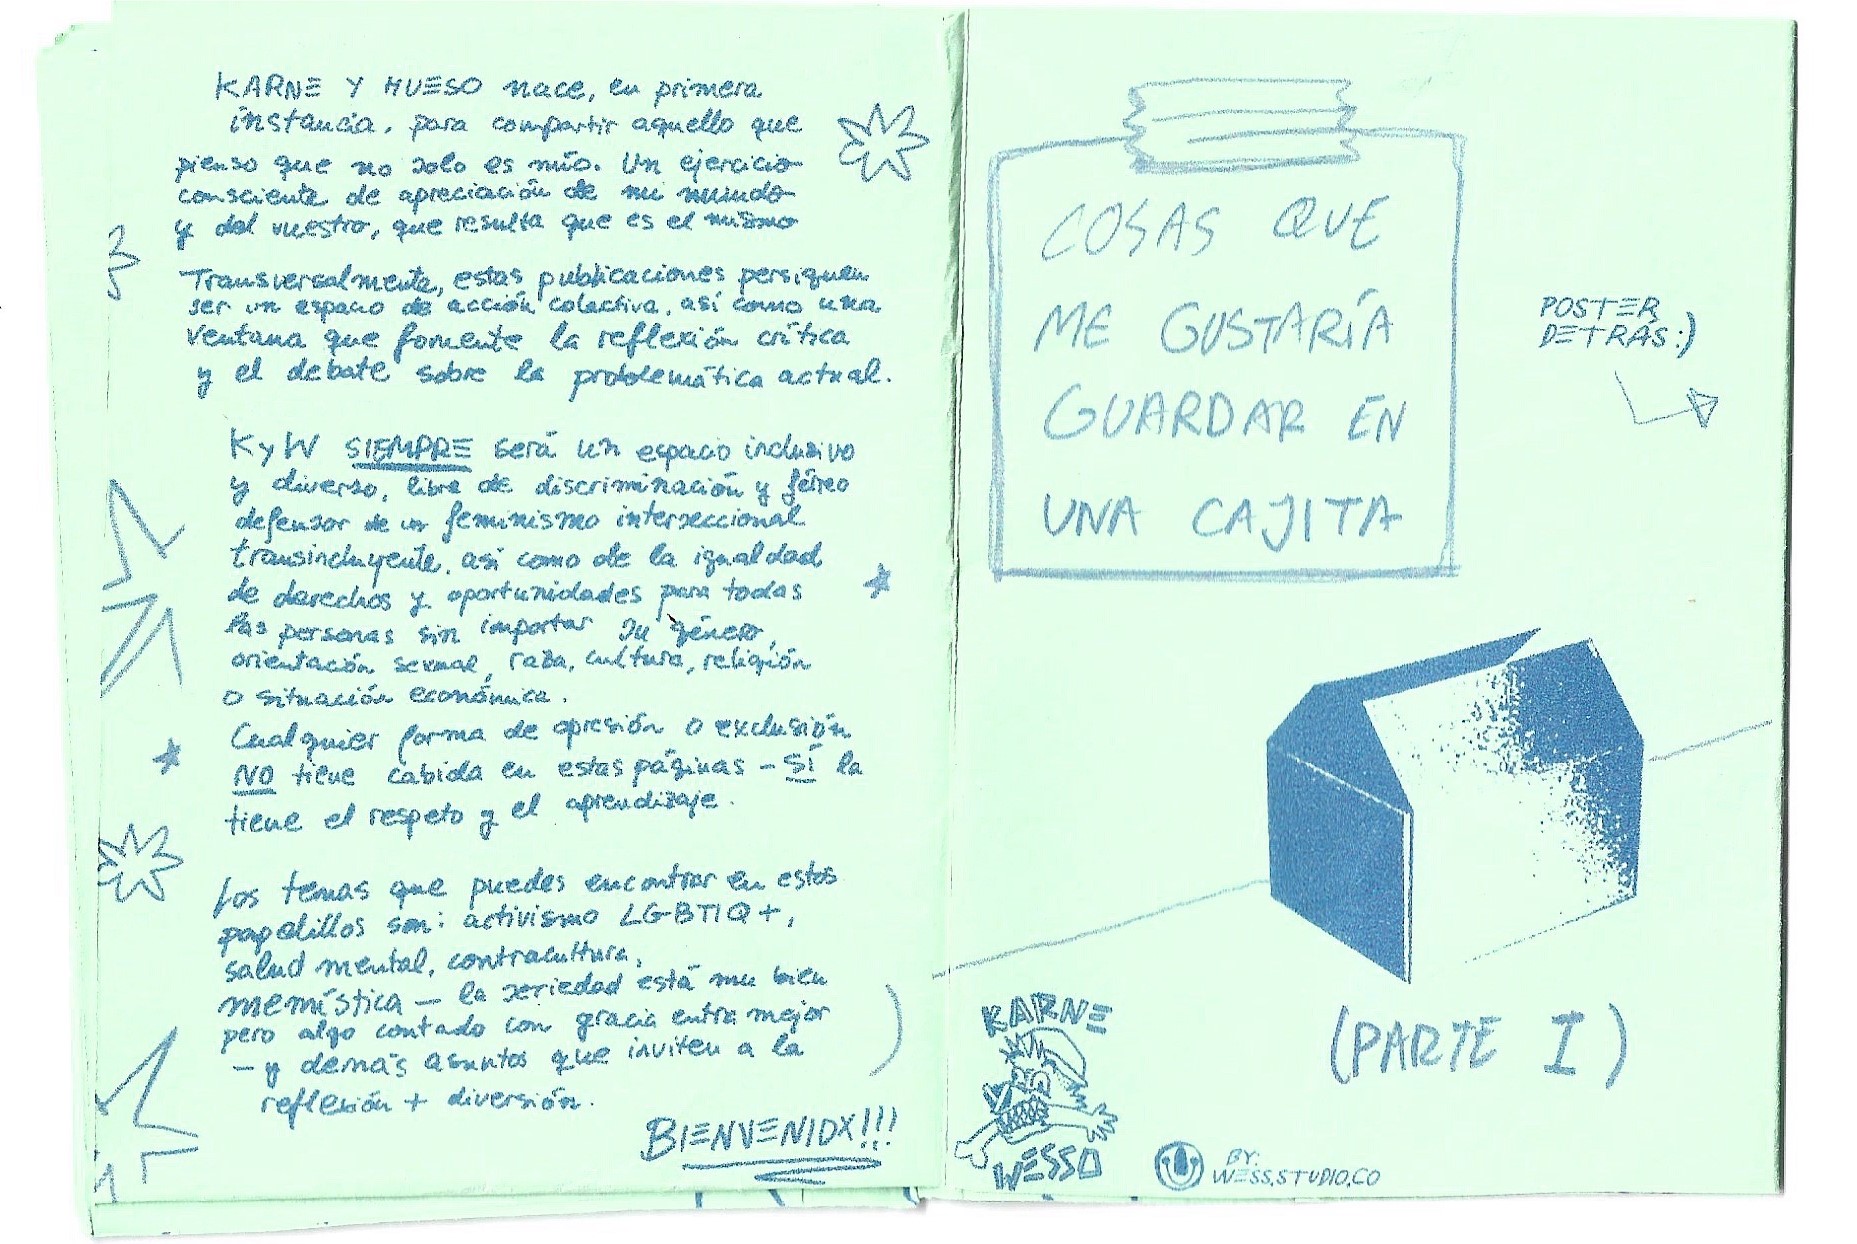 KARNE Y HUESO nace, en primera
instancia, para compartir aquello que
pienso que no solo es mío. Un ejercicio
consciente de apreciación de mi mundo
y del vuestro, que resulta que es el mismo
Transversalmente, estas publicaciones persiguen
ser un espacio de acción colectiva, así como una
ventana que fomente la reflexión crítica
y el debate sobre la problemática actual.
KyW SIEMPRE será un espacio inclusivo
y diverso, libre de discriminación y férreo
defensor de un feminismo interseccional
transincluyente, así como de la igualdad
de derechos y oportunidades para todas
las personas sin importar su género,
orientación sexual, raza, cultura, religión
o situación económica.
Cualquier forma de opresión o exclusión
NO tiene cabida en estas páginas - SÍ la
tiene el respeto y el aprendizaje.
Los temas que puedes encontrar en estos
papelillos son: activismo LGBTIQ+,
salud mental, contracultura,
memística - la seriedad está mu bien
pero algo contado con gracia entra mejor
- y demás asuntos que inviten a la
reflexión + diversión.
BIENVENIDX!!!
COSAS QUE
ME GUSTARÍA
GUARDAR EN
UNA CAJITA
POSTER
DETRÁS:)
(PARTE I)
KARNE
WESSO
BY:
WESS.STUDIO.CO